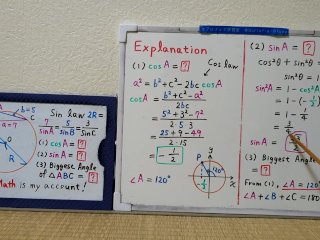 b=5
a=7
Sin law 2R=
7/sinA = 5/sinB = 3/sinC
(1) cosA = ?
(2) sinA = ?
(3) Biggest Angle
of △ABC = ?
Math is my account!
O
R
Explanation
(1) cosA = ?
Cos law
a² = b²+c²-2bc cosA
cosA = (b²+c²-a²)/2bc
= (5²+3²-7²)/(2·5·3)
= (25+9-49)/(2·15)
= -1/2
∠A = 120°
P
y
x
120°
(2) sinA = ?
cos²θ + sin²θ =
sin²θ = 1
= 1 - cos²
= 1 - 1/4
sinA =
(3) Biggest
= ?
From (1), ∠A = 120°
∠A + ∠B + ∠C = 180